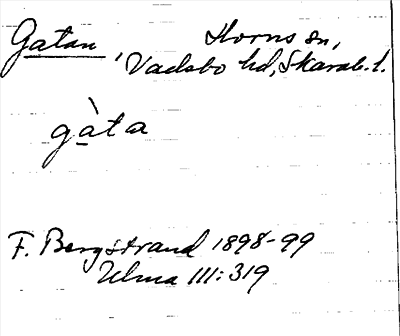 Gatan, Horns sn,
Vadsbo hd, Skarab. l.
gàta
F. Bergstrand 1898-99
Ulma 111:319